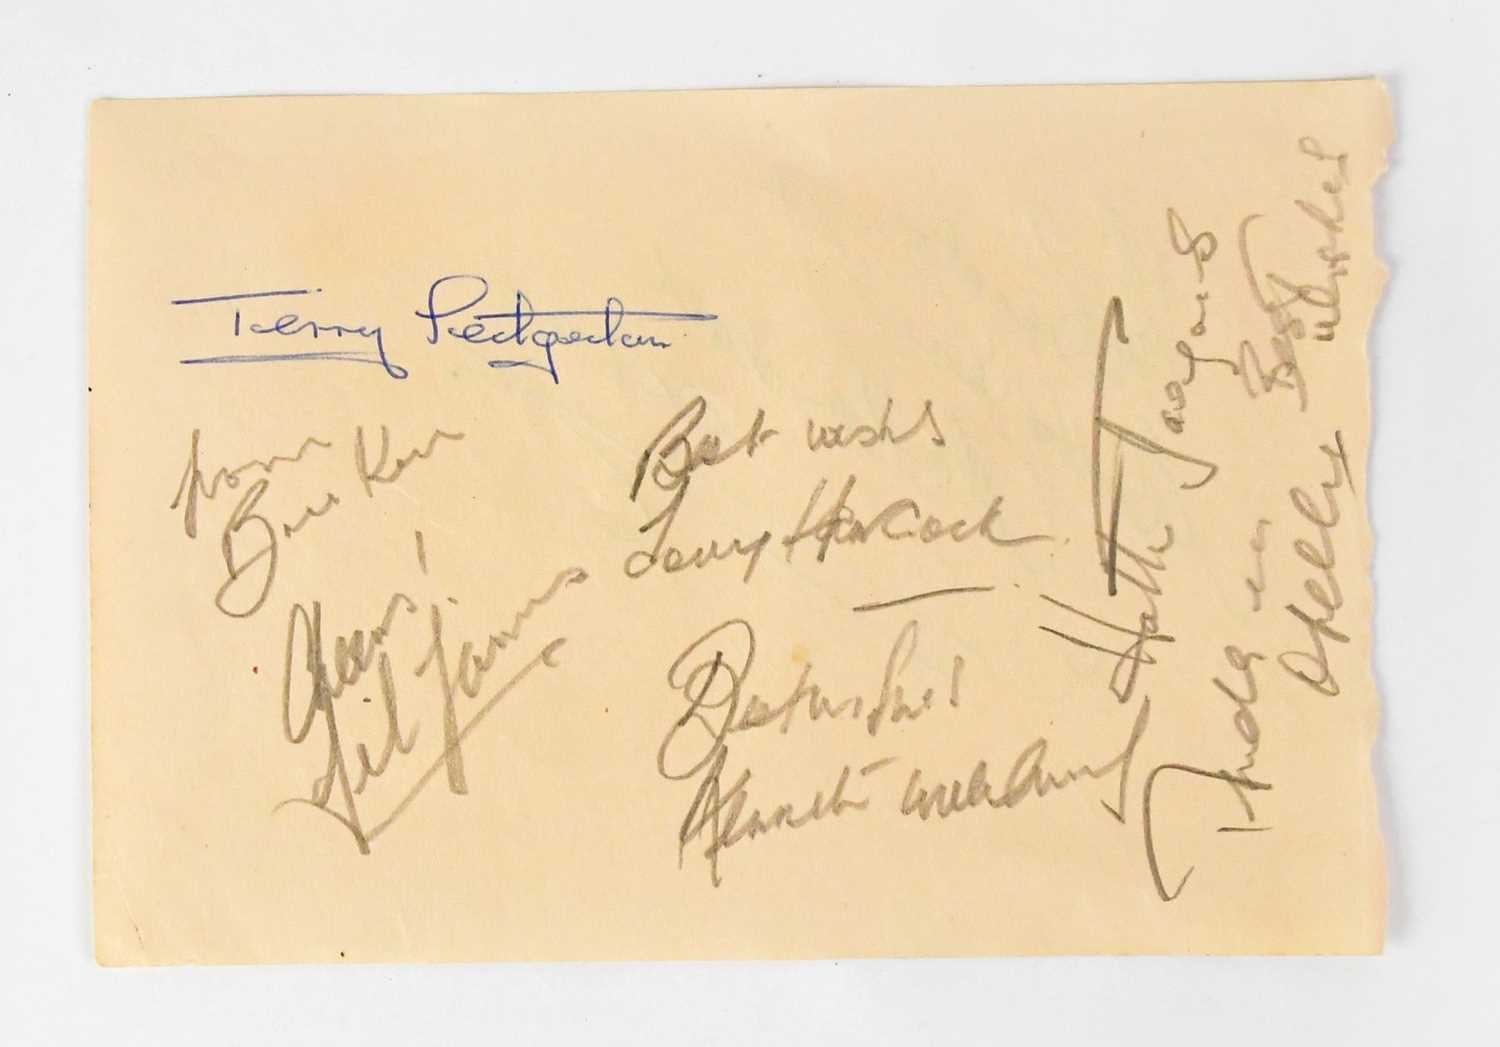 Terry
from
Bill Kerr
Cheers!
Sid James
Best wishes
Tony Hancock
Best wishes!
Kenneth Williams
Hattie Jacques
Best
wishes